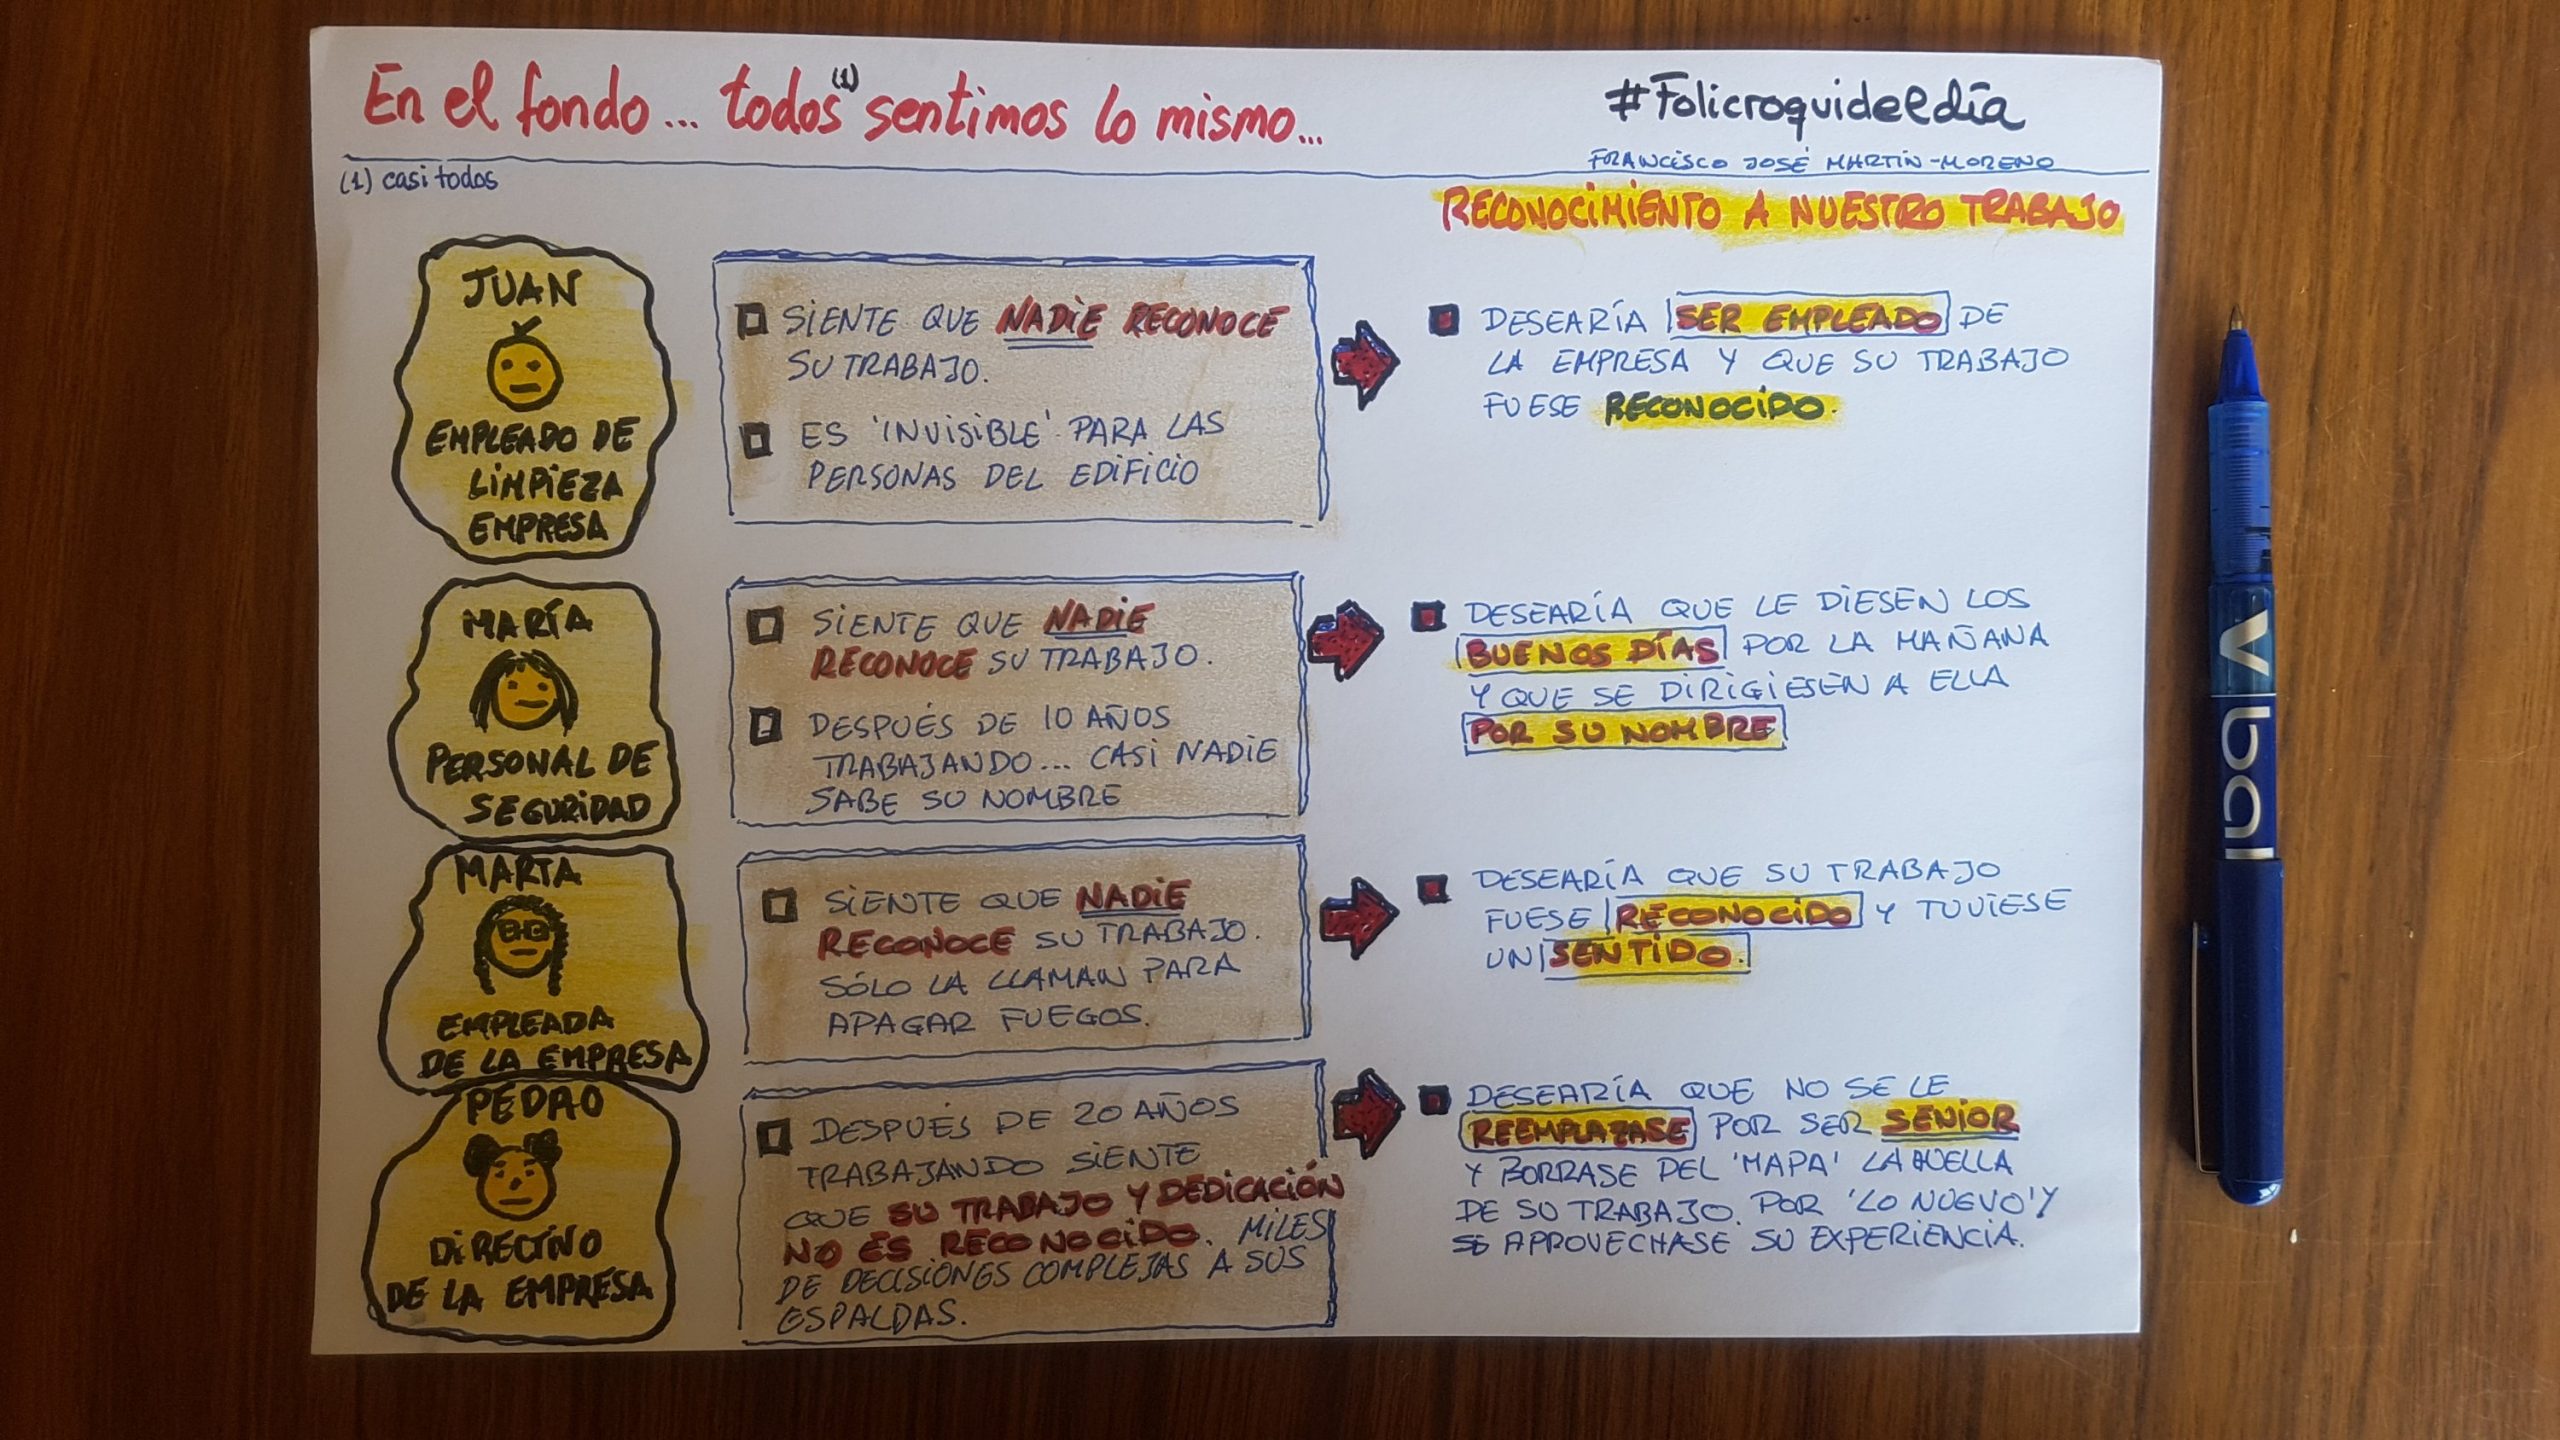 En el fondo... todos(1) sentimos lo mismo...
#Folicroquideldía
FRANCISCO JOSÉ MARTÍN-MORENO
(1) casi todos
RECONOCIMIENTO A NUESTRO TRABAJO
JUAN
EMPLEADO DE
LIMPIEZA
EMPRESA
SIENTE QUE NADIE RECONOCE
SU TRABAJO.
ES 'INVISIBLE' PARA LAS
PERSONAS DEL EDIFICIO
DESEARÍA SER EMPLEADO DE
LA EMPRESA Y QUE SU TRABAJO
FUESE RECONOCIDO.
MARÍA
PERSONAL DE
SEGURIDAD
SIENTE QUE NADIE
RECONOCE SU TRABAJO.
DESPUÉS DE 10 AÑOS
TRABAJANDO... CASI NADIE
SABE SU NOMBRE
DESEARÍA QUE LE DIESEN LOS
BUENOS DÍAS POR LA MAÑANA
Y QUE SE DIRIGIESEN A ELLA
POR SU NOMBRE
MARTA
EMPLEADA
DE LA EMPRESA
SIENTE QUE NADIE
RECONOCE SU TRABAJO.
SÓLO LA LLAMAN PARA
APAGAR FUEGOS.
DESEARÍA QUE SU TRABAJO
FUESE RECONOCIDO Y TUVIESE
UN SENTIDO.
PEDRO
DIRECTIVO
DE LA EMPRESA
DESPUÉS DE 20 AÑOS
TRABAJANDO SIENTE
QUE SU TRABAJO Y DEDICACIÓN
NO ES RECONOCIDO. MILES
DE DECISIONES COMPLEJAS A SUS
ESPALDAS.
DESEARÍA QUE NO SE LE
REEMPLAZASE POR SER SENIOR
Y BORRASE DEL 'MAPA' LA HUELLA
DE SU TRABAJO. POR 'LO NUEVO' Y
SE APROVECHASE SU EXPERIENCIA.
V ball